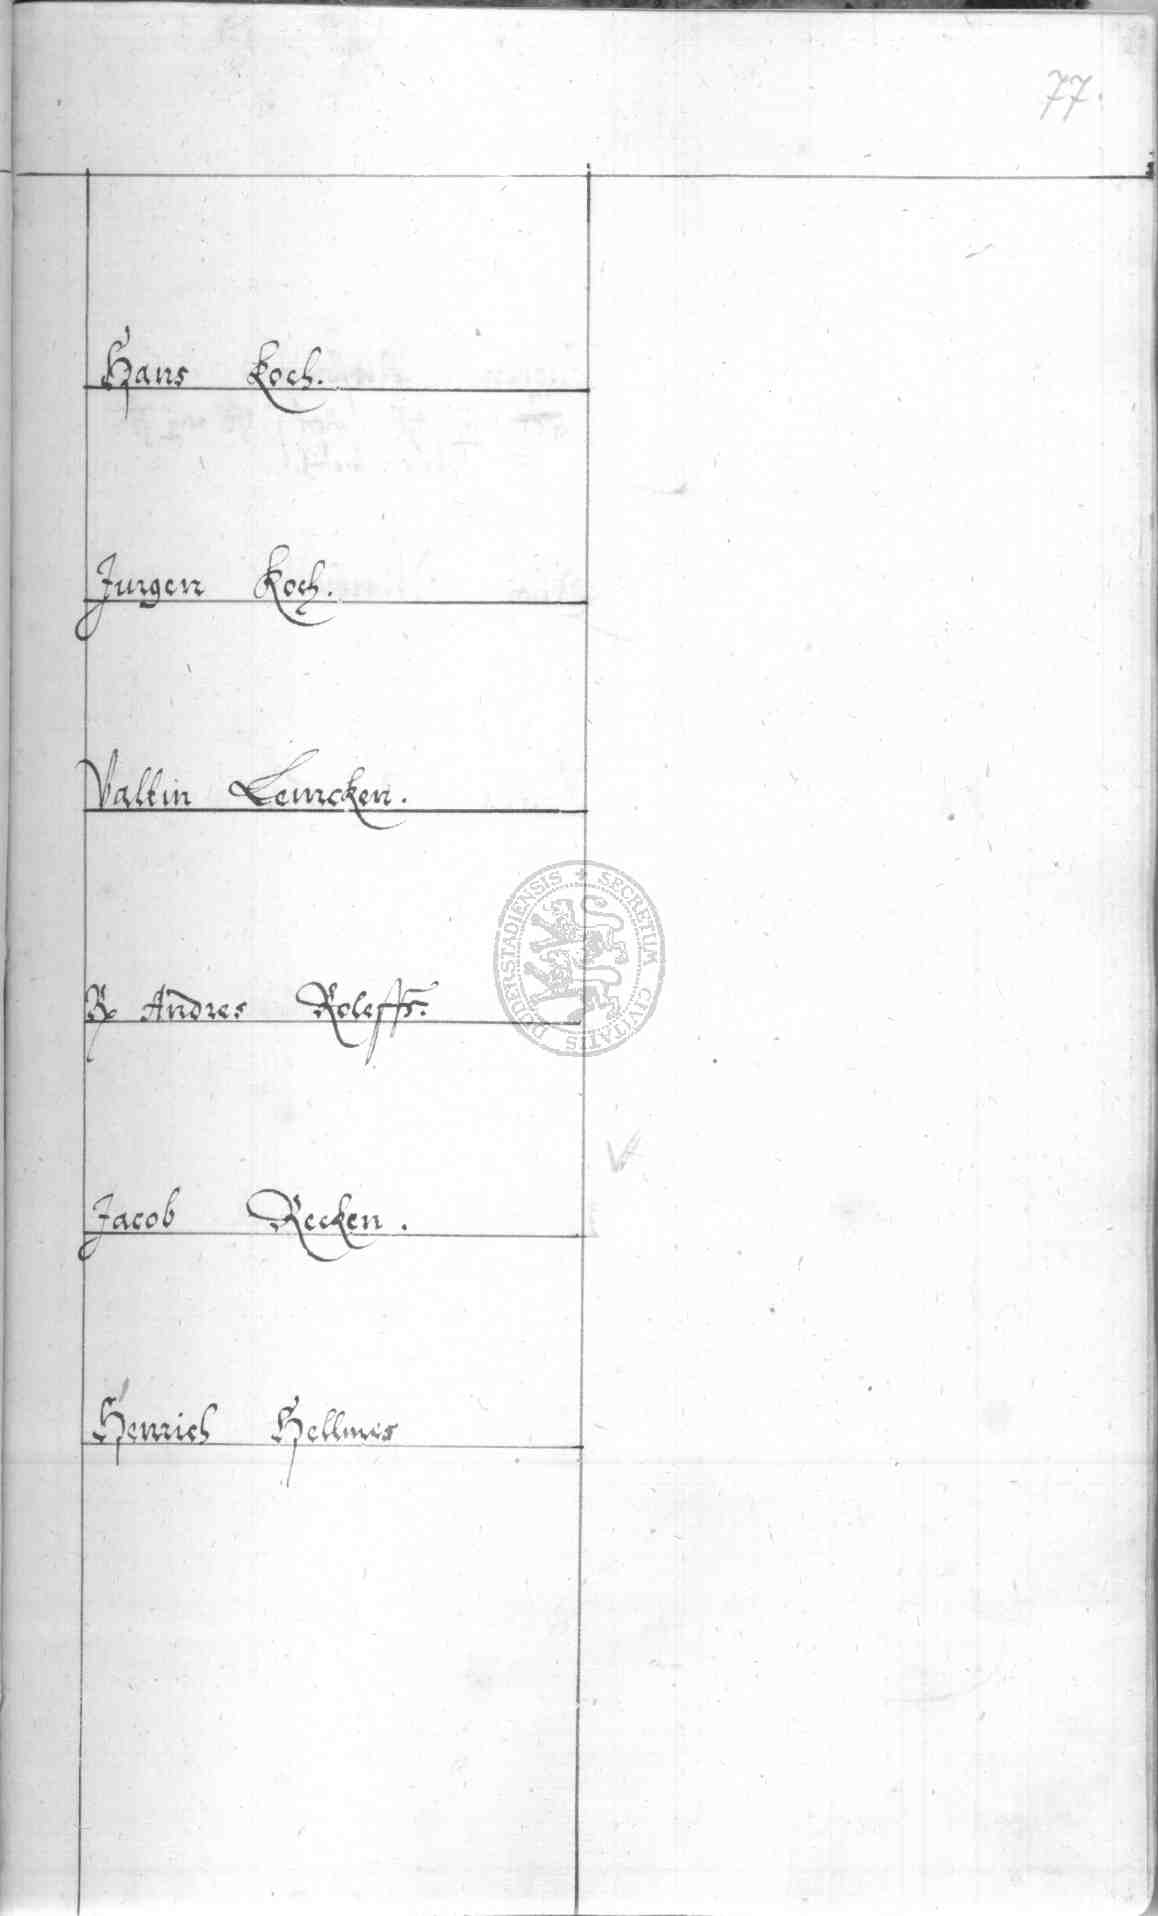 77.
Hans Koch.
Jurgen Koch.
Valtin Lemcken.
Andres Roleffs.
SECRETUM CIVITATIS DUDERSTADIENSIS
Jacob Recken.
Henrich Hellmes